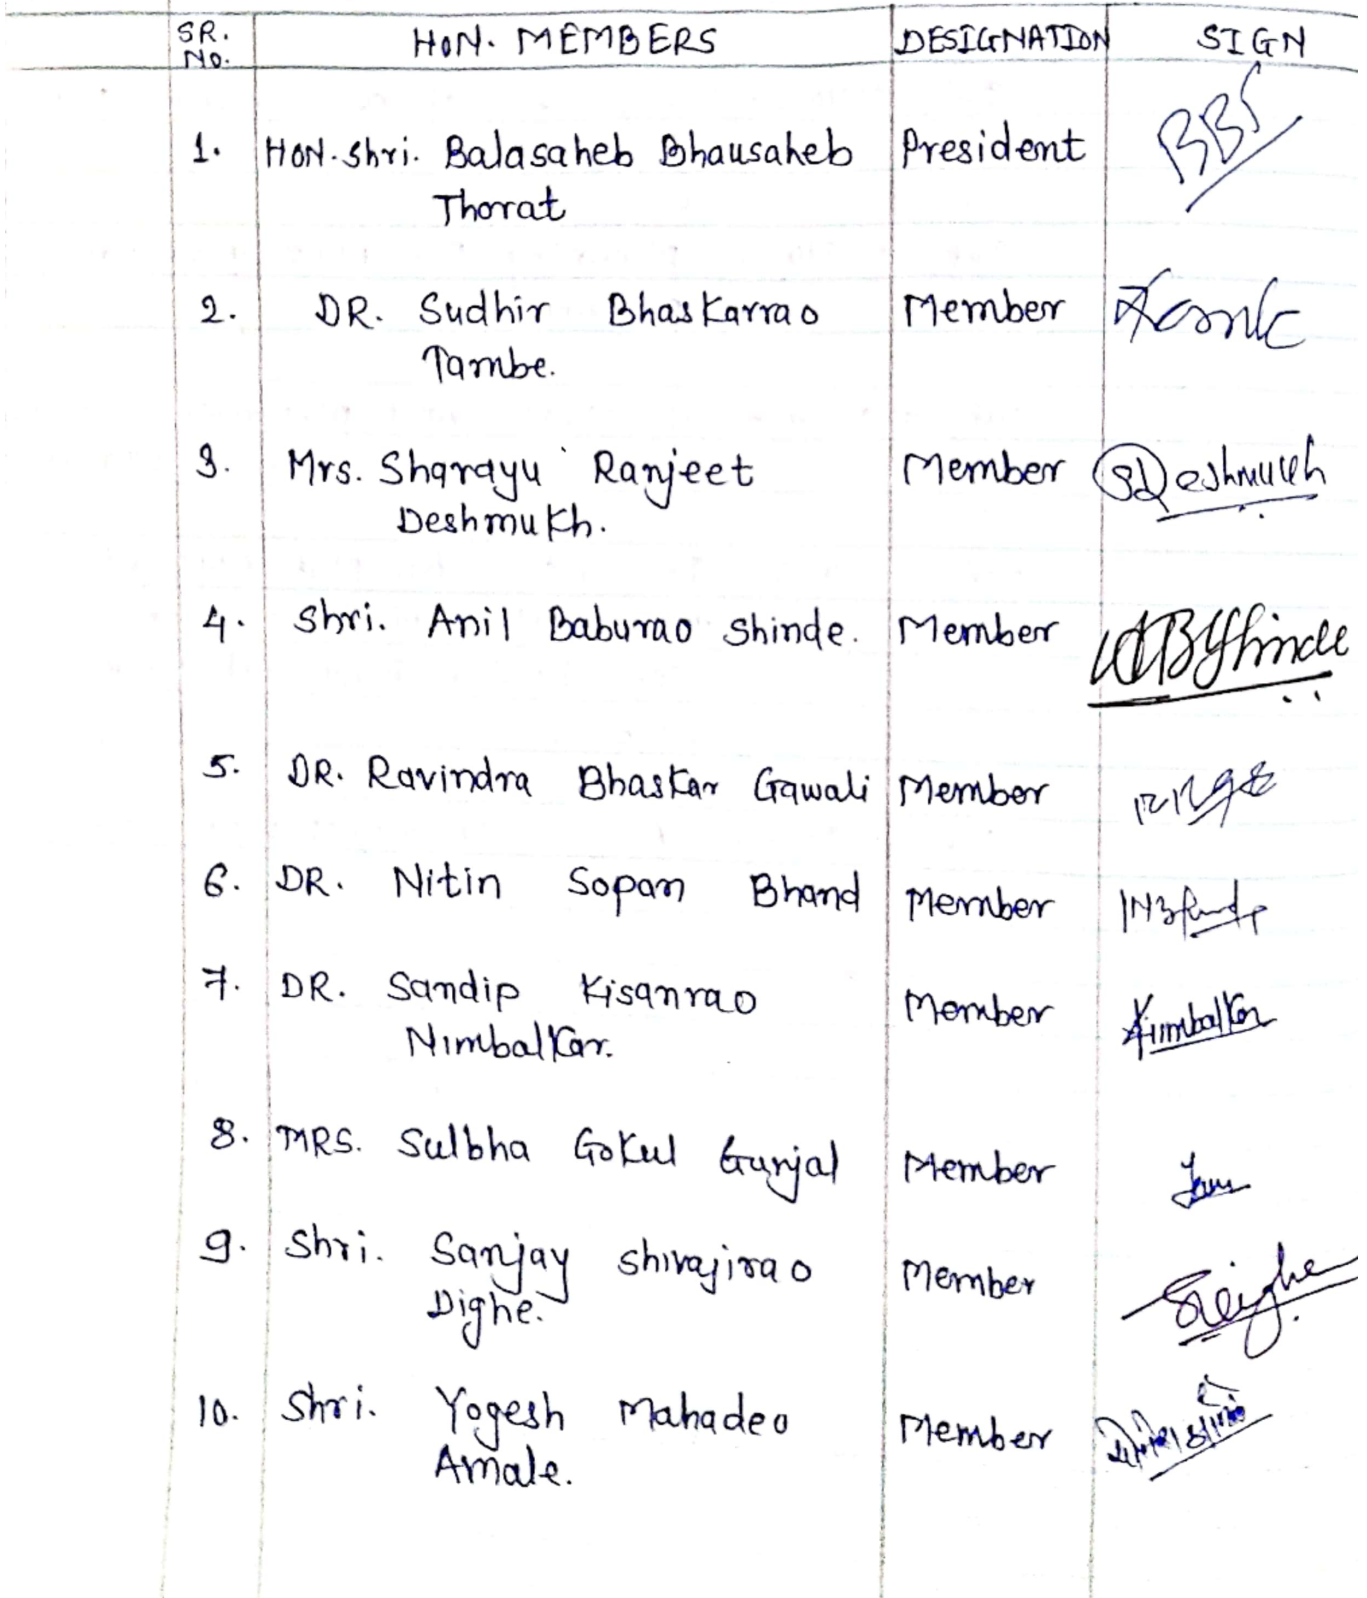 SR. NO. HON. MEMBERS DESIGNATION SIGN
1. HON. Shri. Balasaheb Bhausaheb President BBT
Thorat
2. DR. Sudhir Bhaskarrao Member
Tambe.
3. Mrs. Sharayu Ranjeet Member SDeshmukh
Deshmukh.
4. Shri. Anil Baburao Shinde. Member ABShinde
5. DR. Ravindra Bhaskar Gawali Member
6. DR. Nitin Sopan Bhand Member
7. DR. Sandip Kisanrao Member Nimbalkar
Nimbalkar.
8. MRS. Sulbha Gokul Gunjal Member
9. Shri. Sanjay Shivajirao Member
Dighe.
10. Shri. Yogesh Mahadeo Member
Amale.